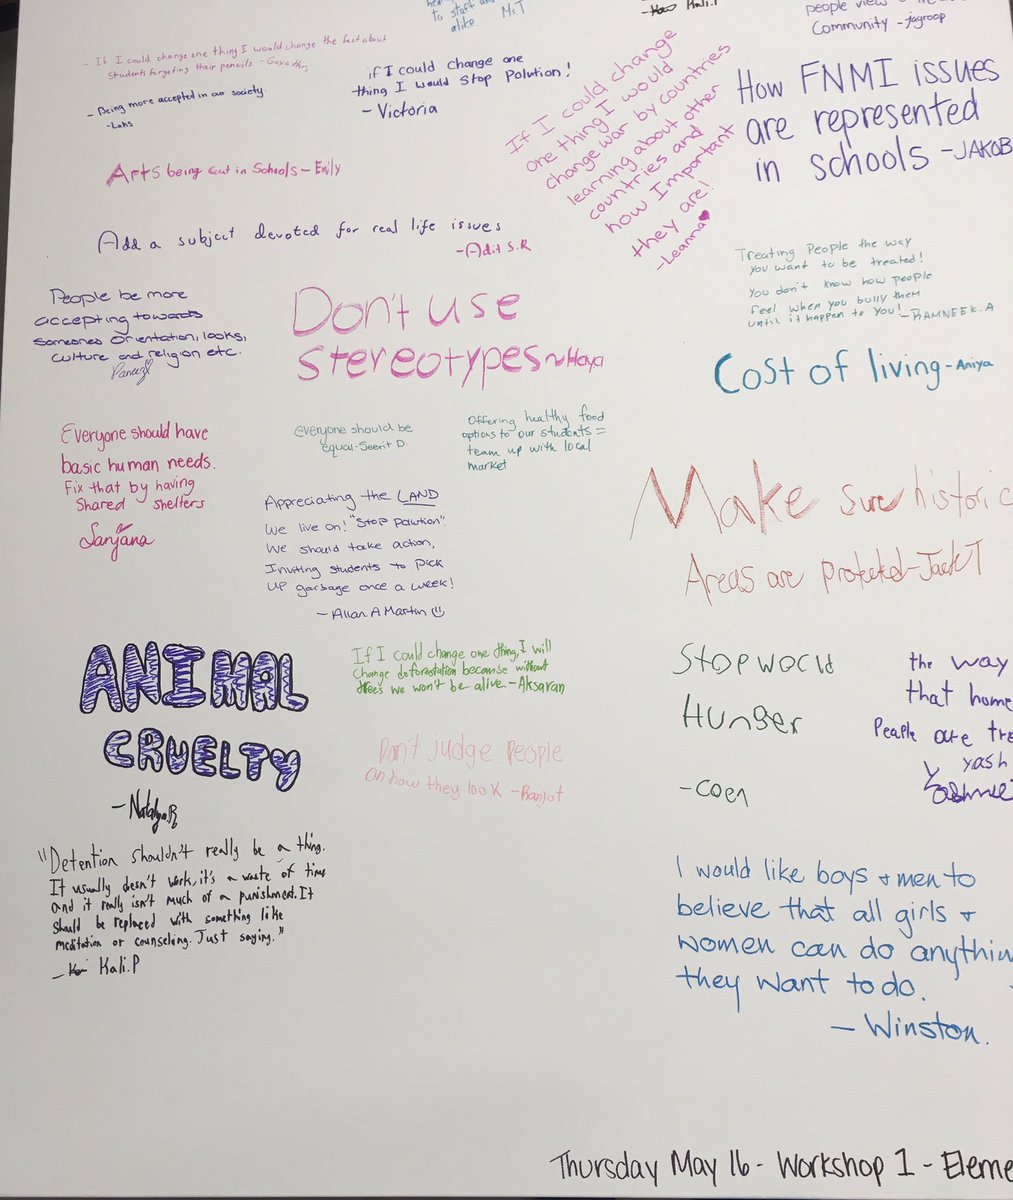 to staff and
alike Ms.T
Kali.P
people view
Community - Jagroop
- If I could change one thing I would change the fact about
students forgetting their pencils - Gayathri
- Being more accepted in our society.
if I could change one
thing I would Stop Polution!
- Victoria
If I could change
one thing I would
change war by countries
learning about other
countries and
how Important
they are!
- Leanna
How FNMI issues
are represented
in schools - JAKOB
Arts being cut in Schools - Emily
Add a subject devoted for real life issues
- Adit S.R
Treating People the way
you want to be treated!
You don't know how people
feel when you bully them
until it happen to you! - RAMNEEK.A
People be more
accepting towards
someones orientation, looks,
culture and religion etc.
Don't use
stereotypes ~ Haya
Cost of living - Aniya
Everyone should have
basic human needs.
Fix that by having
shared shelters
Sanjana
everyone should be
equal - Seerit D
Offering healthy food
options to our students =
team up with local
market
Appreciating the LAND
We live on! "Stop polution".
We should take action,
Inviting students to pick
up garbage once a week!
- Allan A Martin
Make sure historic
Areas are protected - Jack T
ANIMAL
CRUELTY
If I could change one thing, I will
change deforestation because without
trees we won't be alive - Aksaran
Stop world
Hunger
- coen
the way
that home
People are tre
yash
Don't judge people
on how they look - Ranjot
"Detention shouldn't really be a thing.
It usually doesn't work, it's a waste of time
and it really isn't much of a punishment. It
should be replaced with something like
meditation or counseling. Just saying."
- Kali.P
I would like boys + men to
believe that all girls +
women can do anythin
they want to do.
- Winston.
Thursday May 16 - Workshop 1 - Eleme